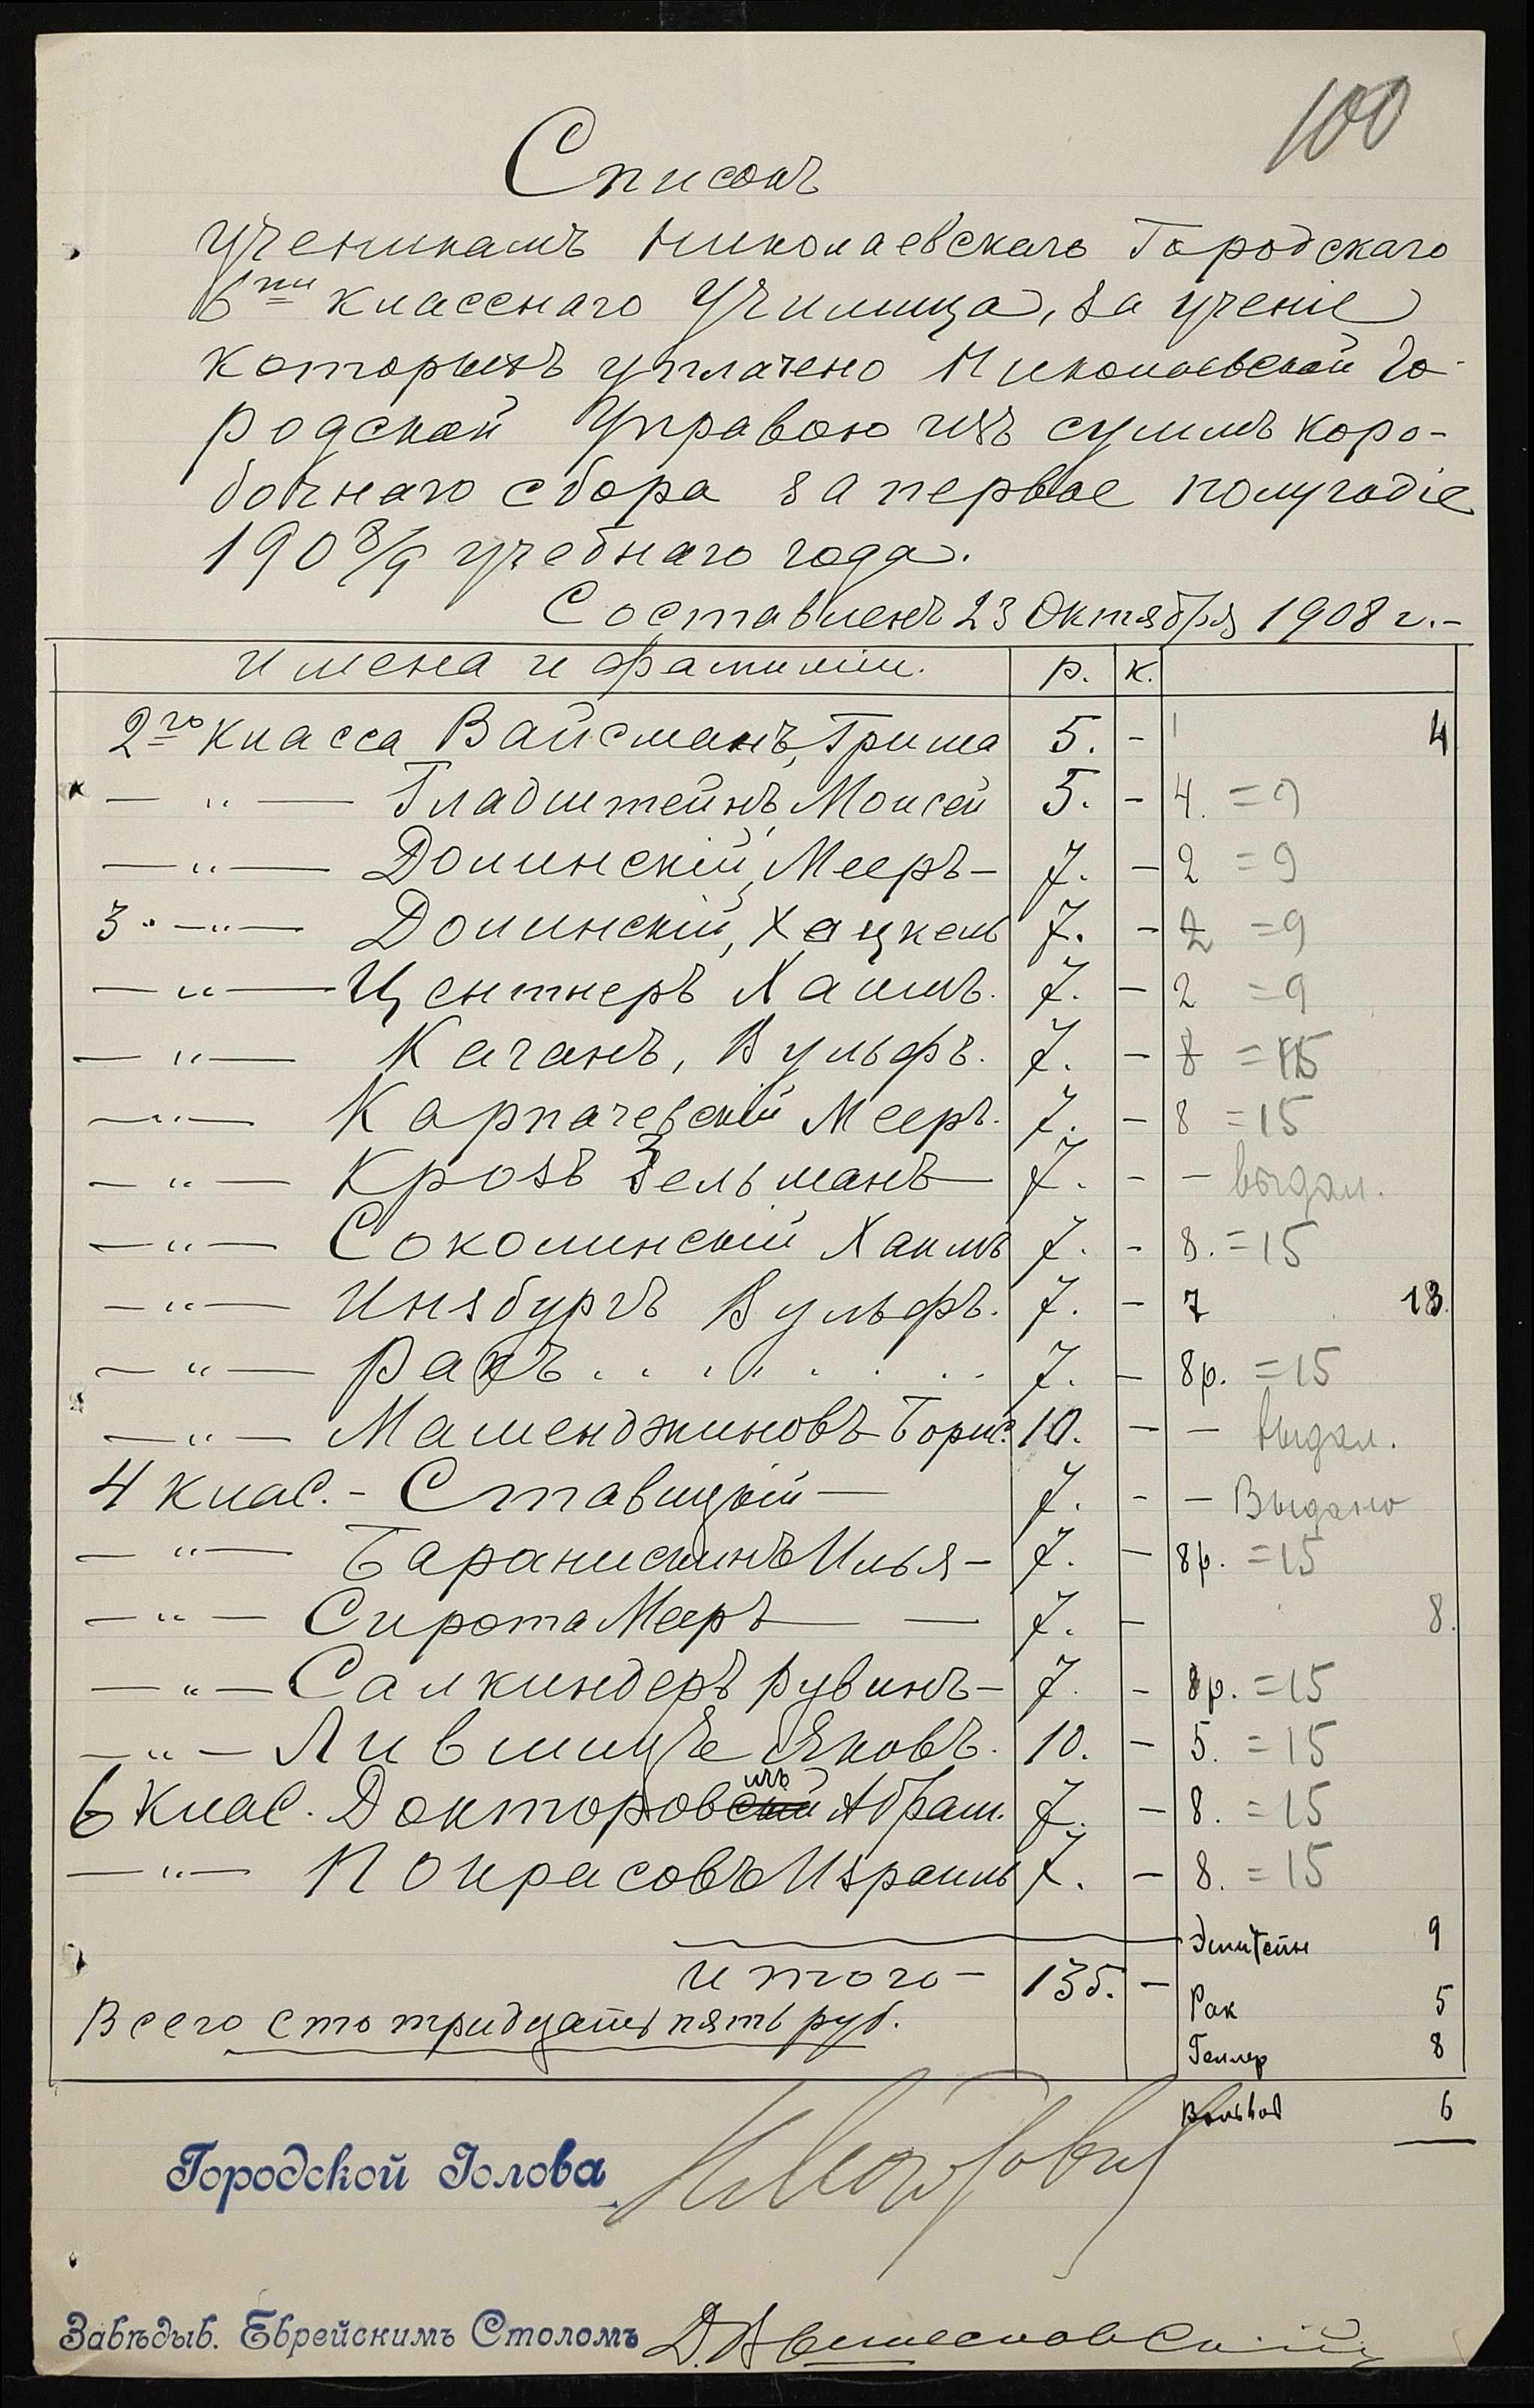 100
Списокъ
ученикамъ Николаевскаго Городскаго
6ти класснаго Училища, за ученіе
которыхъ уплачено Николаевской Го-
родской Управою изъ суммъ коро-
бочнаго сбора за первое полугодіе
1908/9 учебнаго года.
Составленъ 23 Октября 1908 г.-
имена и фамиліи. р. к.
2го класса Вайсманъ, Гриша 5. - 4
— " — Гладштейнъ, Моисей 5. - 4. = 9
— " — Долинскій, Мееръ - 7. - 2 = 9
3 · — " — Долинскій, Хацкель 7. - 2 = 9
— " — Центнеръ Хаимъ. 7. - 2 = 9
— " — Каганъ, Вульфъ. 7. - 8 = 15
— " — Карпачевскій Мееръ. 7. - 8 = 15
— " — Крозъ Зельманъ 7. - - выдан.
— " — Соколинскій Хаимъ 7. - 8. = 15
— " — Инзбургъ Вульфъ. 7. - 7 13.
— " — Ракъ . . . . . . . 7. - 8р. = 15
— " — Маменджиновъ Борис. 10. - - Выдан.
4 клас. - Ставицкій — 7. - - Выдано
— " — Баранискинъ Илья - 7. - 8р. = 15
— " — Сирота Мееръ — — 7. - 8.
— " — Салкиндеръ Рувинъ - 7. - 8р. = 15
— " — Лившицъ Яковъ. 10. - 5. = 15
6 Клас. Докторовичъ Абрам. 7. - 8. = 15
— " — Покрасовъ Израиль 7. - 8. = 15
Эпштейн 9
итого - 135. -
Рак 5
Всего сто тридцать пять руб.
Геллер 8
6
Городской Голова
Завѣдыв. Еврейскимъ Столомъ